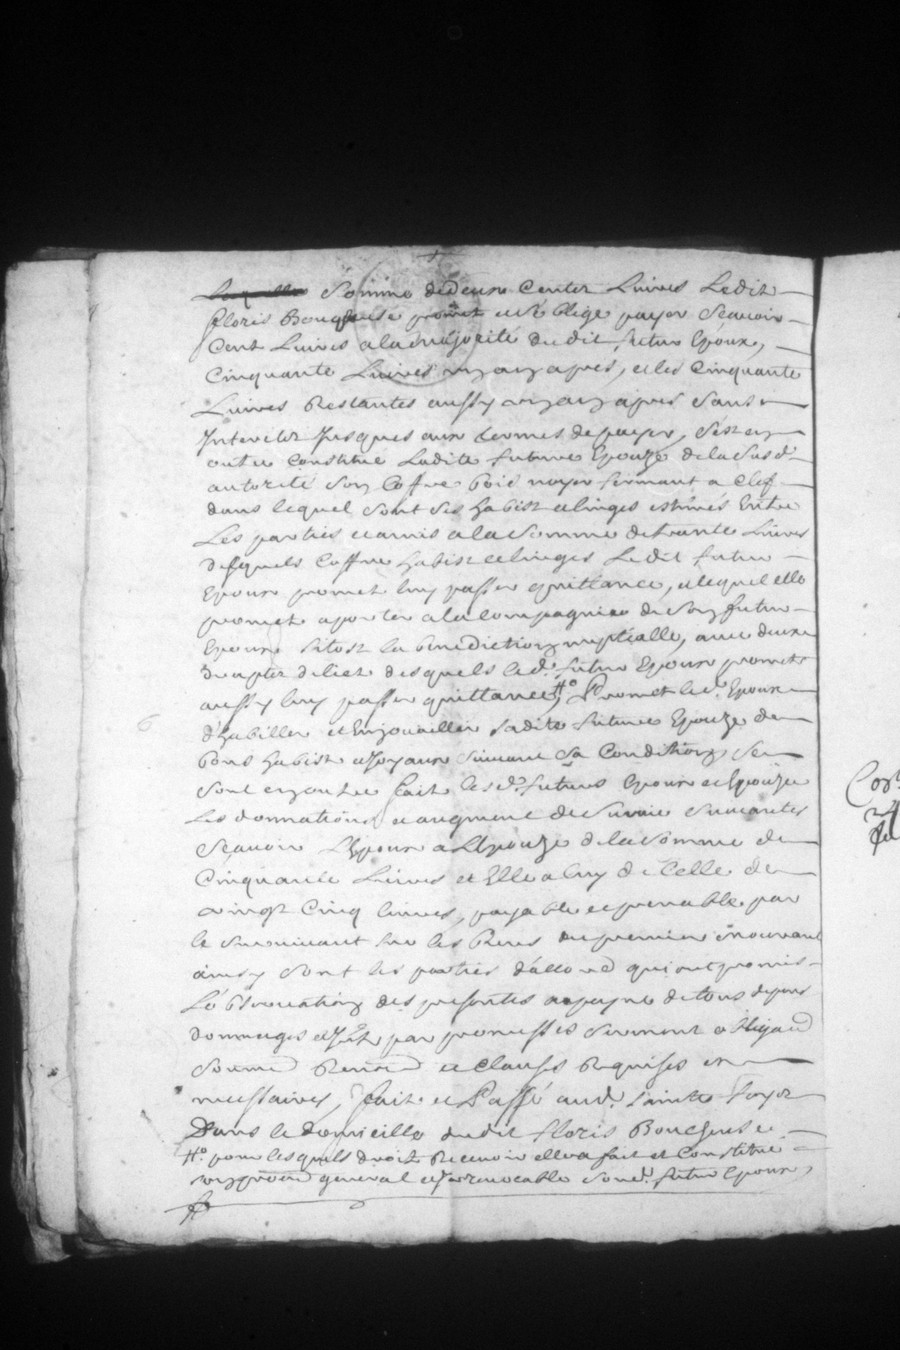 Laquelle Somme de deux Centz Livres Ledit
floris Boucheuse promet et sé blige payer Scavoir
Cent Livres a la majorité du dit futur Epoux,
Cinquante Livres un an apres, et les Cinquante
Livres Restantes aussy un an apres sans
Interetz Jusques aux termes de payer, sest en
outre Constitué Ladite future Epouze de la Susd.
autorité son Coffre bois noyer fermant a Clef
dans lequel sont ses habist et linges estimés Entre
Les parties et amis a la Somme de trente Livres
desquels Coffre habist et linges Ledit futur
Epoux promet luy passer quittance, et lequel elle
promet aporter a la Compagnie de son futur
Epoux sitost la benediction nuptialle, avec deux
de liet desquels led. futur Epoux promet
aussy luy passer quittance, #o Promet led. Epoux
d'habiller et Enjoualler sadite future Epouze de
bons habist et Joyaux suivant sa Condition, se
sont en outre fait lesd. futurs Epoux et Epouze
Les donnations et augment de survie suivantes
Scavoir L'Epoux a L'Epouze de la Somme de
Cinquante Livres et Elle a luy de Celle de
vingt Cinq livres, payable et prenable par
le survivant sur les Biens du premier mourant
ainsy sont les parties d'allord qui ont promis
L'observation des presentes a payne de tous depens
dommages et par promesses serment obligaon
et Clauses Requises et
necessaires, fait et Passé aud. Sainte foy
Dans le domicille dudit floris Boucheuse
#o pour lesquels droits Recevoir elle a fait et Constitué
son general et Irrevocable sond. futur Epoux,